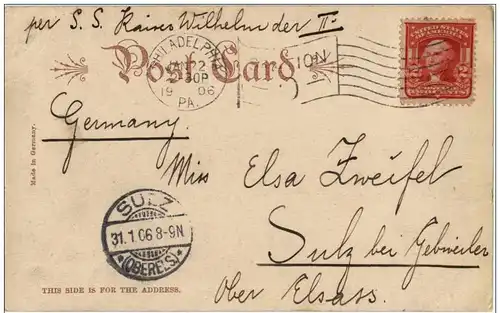 per S. S. Kaiser Wilhelm der II
Post Card
PHILADELPHIA
JAN 22
30P
1906
PA.
ION
UNITED STATES
OF AMERICA
2
CENTS
Germany.
Made in Germany.
Miss Elsa Zweifel
SULZ
31.1.06 8-9N
*(OBERELS)*
Sulz bei Gebweiler
Ober Elsass.
THIS SIDE IS FOR THE ADDRESS.